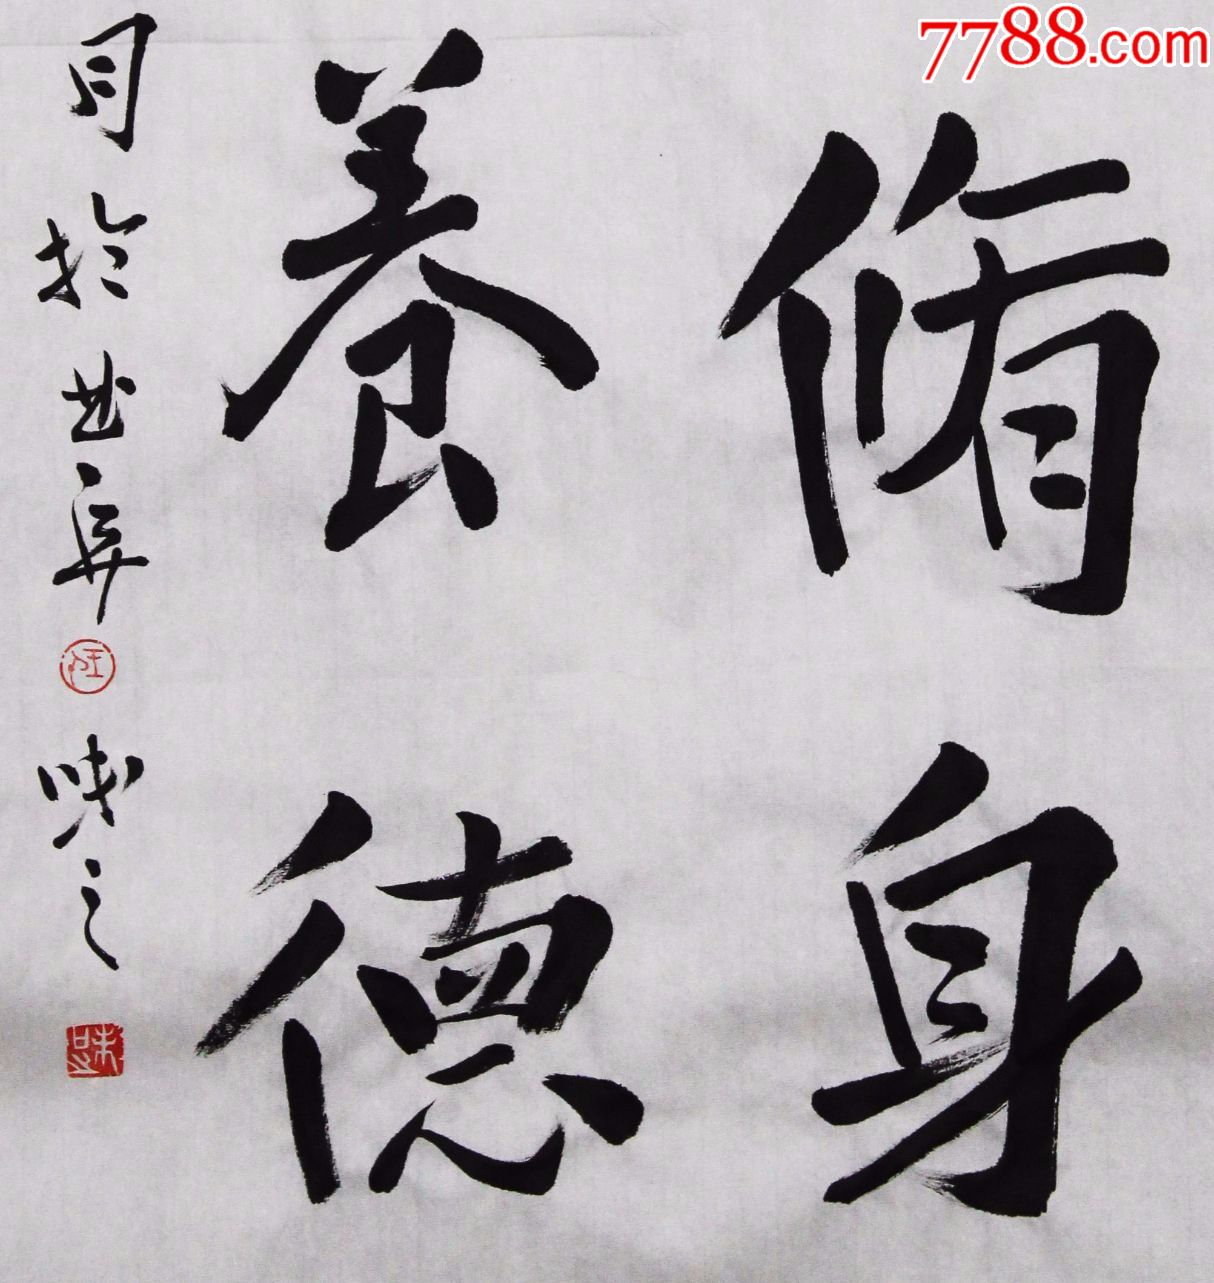 7788.com
脩身
養德
月於曲阜